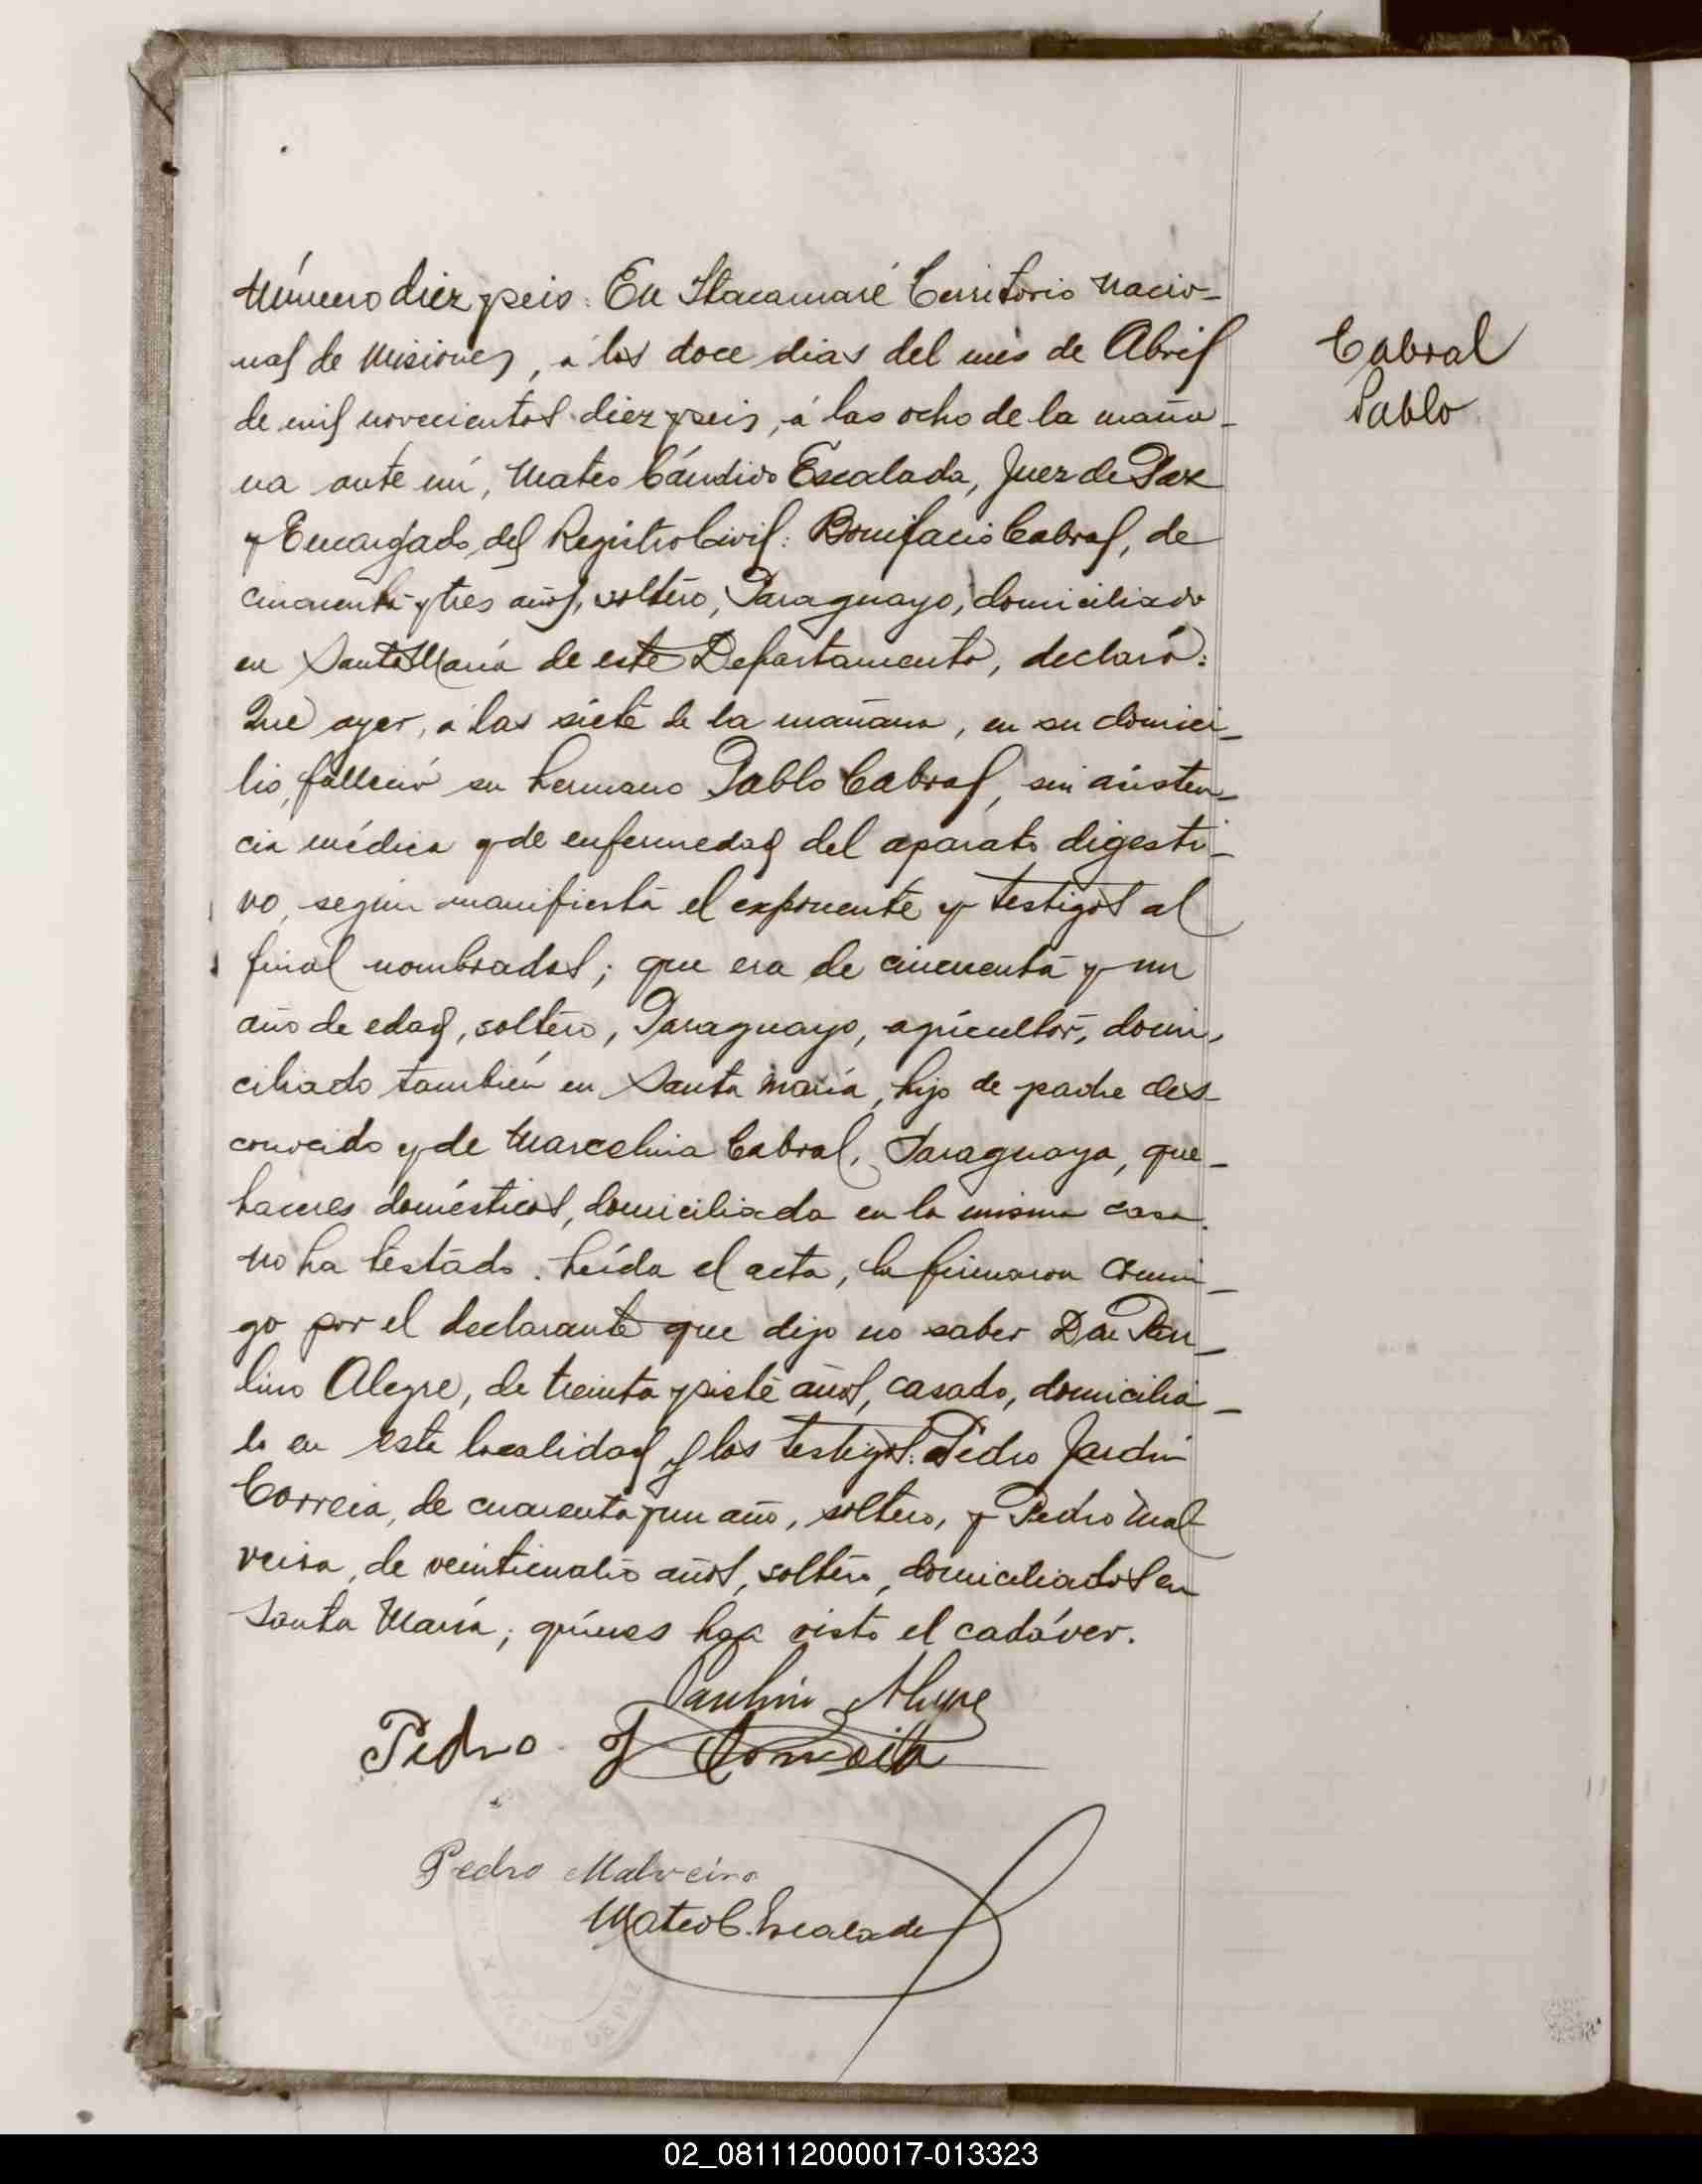 Número diez y seis: En Itacaruaré Territorio Nacio-
nal de Misiones, á los doce dias del mes de Abril
de mil novecientos diez y seis, á las ocho de la maña-
na ante mí, Mateo Cándido Escalada, Juez de Paz
y Encargado del Registro Civil: Bonifacio Cabral, de
cincuenta y tres años, soltero, Paraguayo, domiciliado
en Santa María de este Departamento, declaró:
Que ayer, á las siete de la mañana, en su domici-
lio, falleció su hermano Pablo Cabral, sin asisten-
cia médica y de enfermedad del aparato digesti-
vo, según manifiesta el exponente y testigos al
final nombrados; que era de cincuenta y un
año de edad, soltero, Paraguayo, agricultor, domi-
ciliado también en Santa María, hijo de padre des-
conocido y de Marcelina Cabral, Paraguaya, que-
haceres domésticos, domiciliada en la misma casa.
No ha testado. Leída el acta, la firmaron conmi-
go por el declarante que dijo no saber Don Pau-
lino Alegre, de treinta y siete años, casado, domicilia-
do en esta localidad y los testigos: Pedro Jardin
Correia, de cuarenta y un año, soltero, y Pedro Mal-
veira, de veinticuatro años, soltero, domiciliados en
Santa María; quienes han visto el cadáver.
Paulino Alegre
Pedro J Correia
Pedro Malveira
Mateo C. Escalada
Cabral
Pablo
JUZGADO DE PAZ
02_081112000017-013323